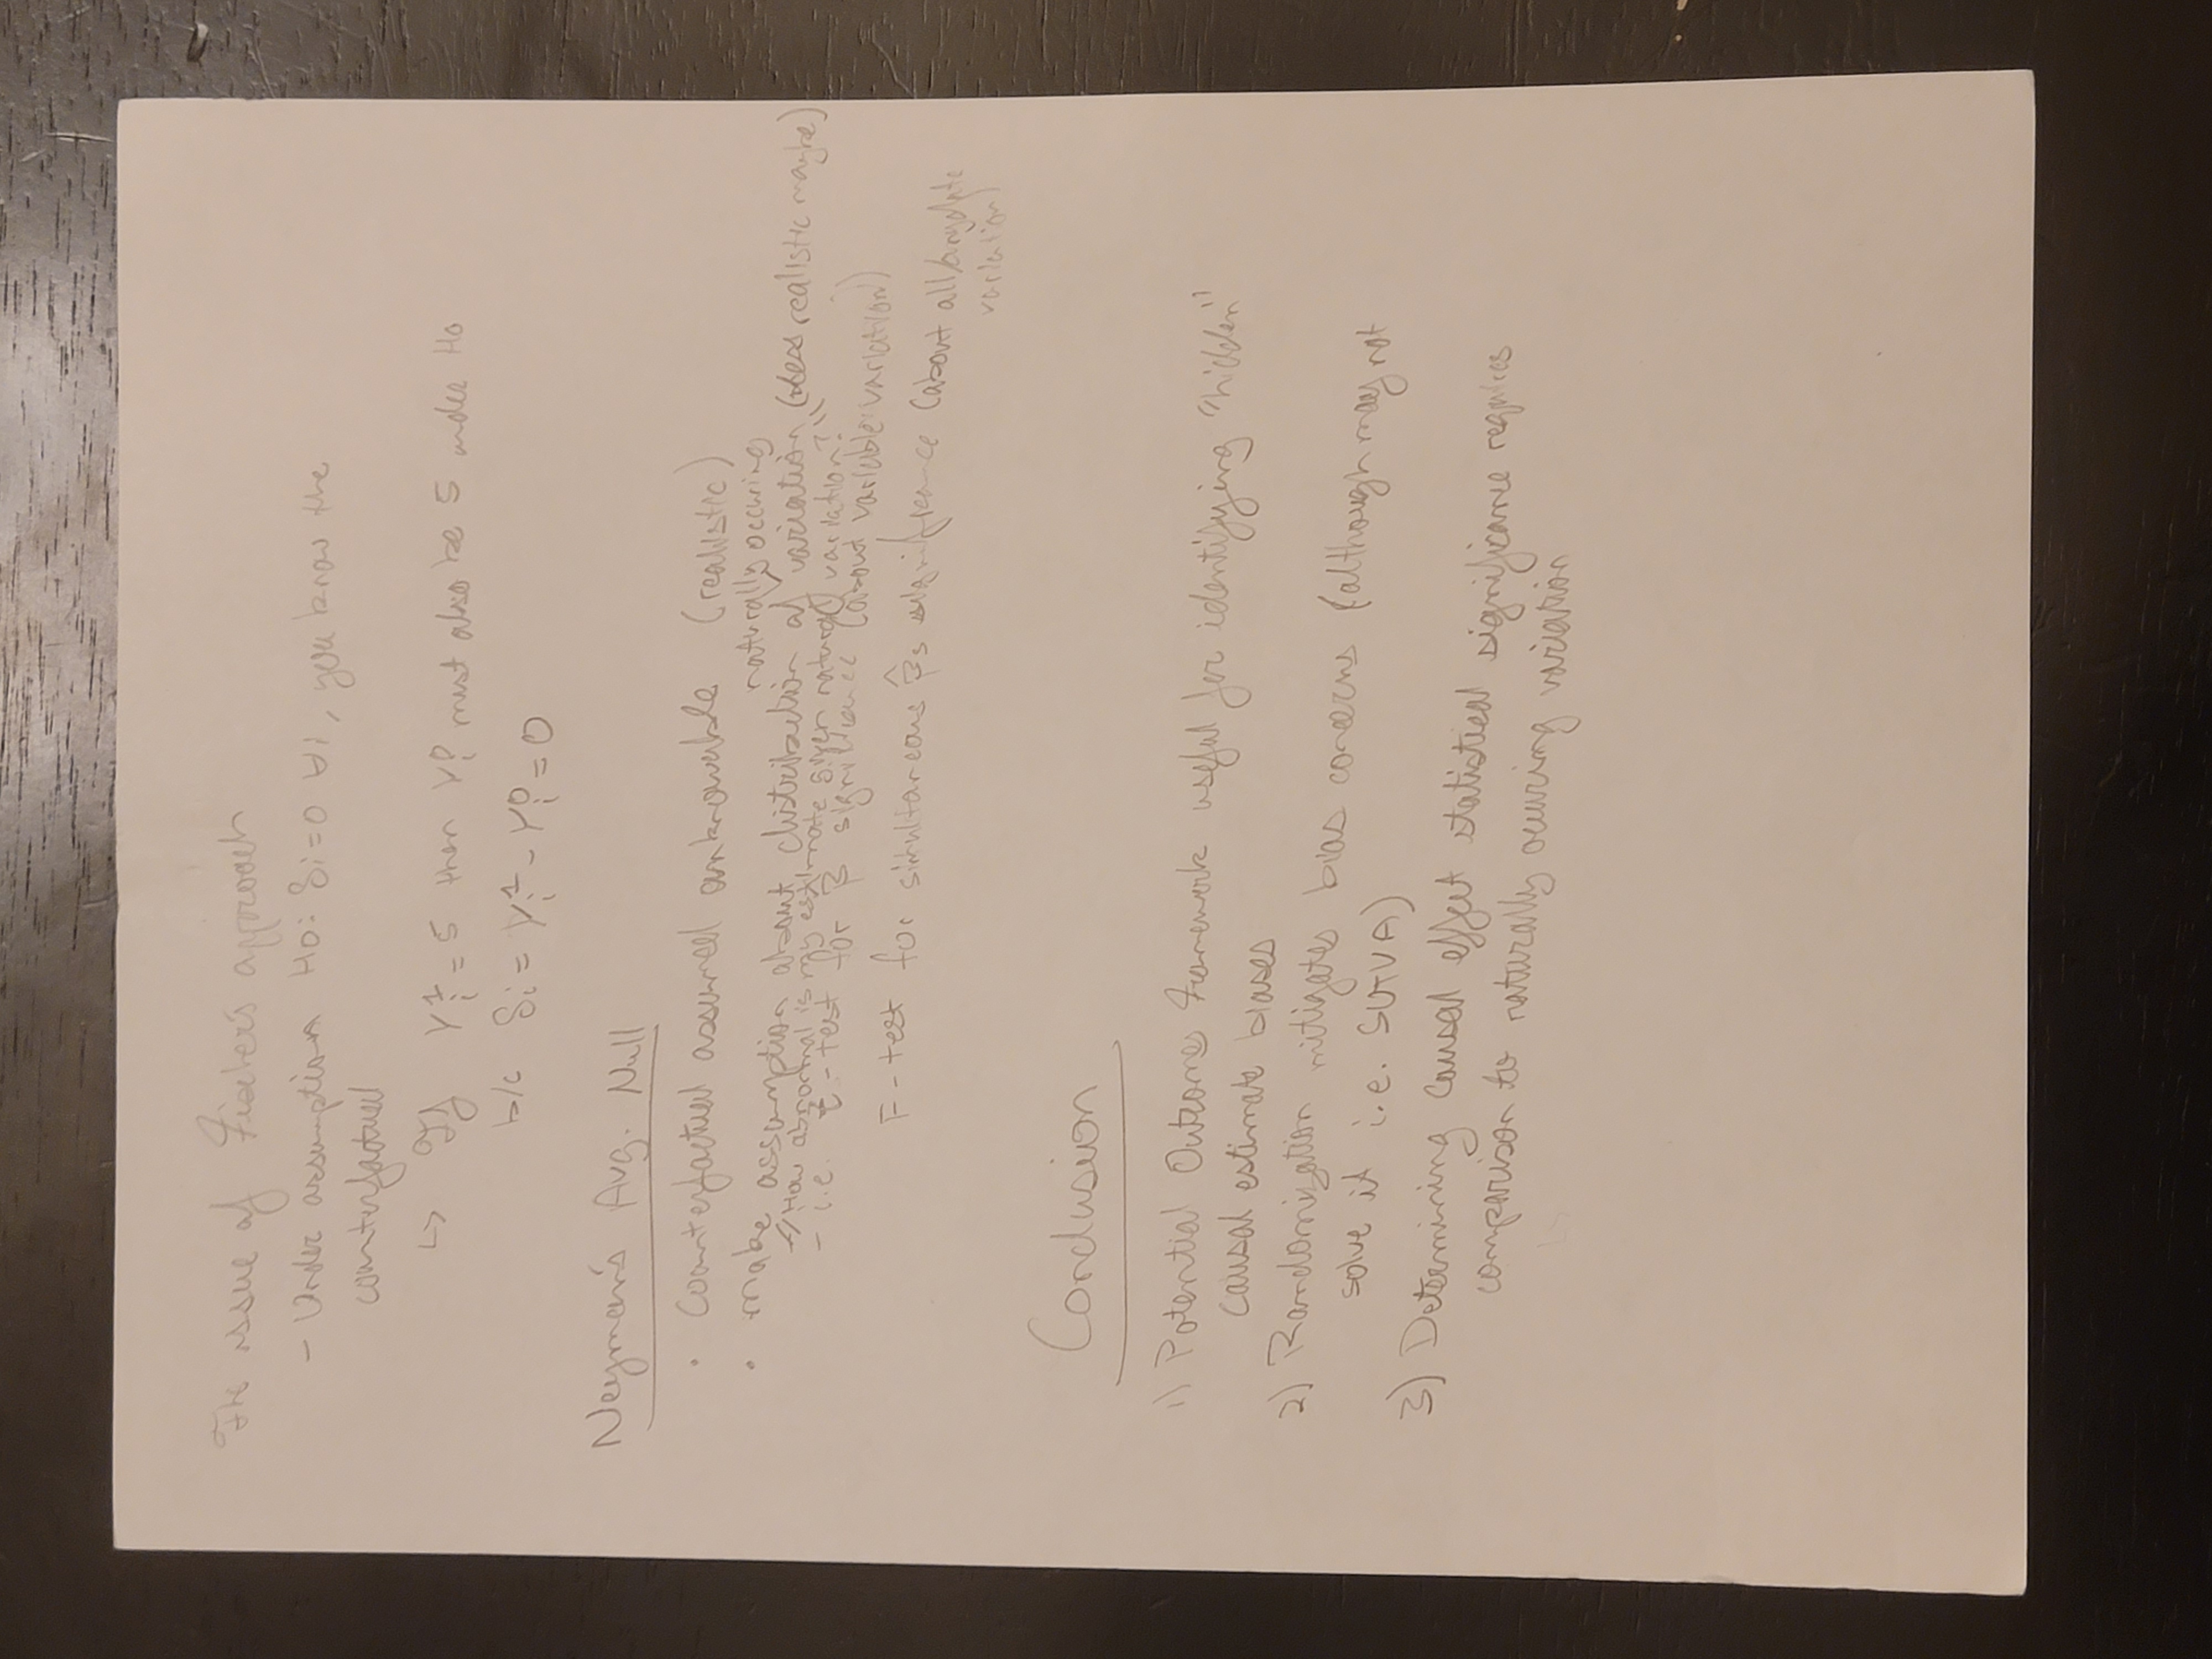 The issue of Fischer's approach
- Under assumption H0: δi=0 ∀i, you know the
counterfactual
↳ If Yi¹ = 5 then Yi⁰ must also be 5 under H0
b/c δi = Yi¹ - Yi⁰ = 0
Neyman's Avg. Null
• Counterfactual assumed unknowable (realistic)
naturally occuring
• make assumption about distribution of variation (less realistic maybe)
"How abnormal is my estimate given natural variation?"
- i.e. t-test for β̂ significance (about variable variation)
F-test for simultaneous β̂s significance (about all
variation)
Conclusion
1) Potential Outcomes Framework useful for identifying "hidden"
causal estimate biases
2) Randomization mitigates bias concerns (although may not
solve it i.e. SUTVA)
3) Determining causal effect statistical significance requires
comparison to naturally occuring variation
↳